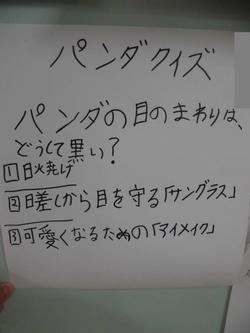 パンダクイズ
パンダの目のまわりは、
どうして黒い?
1日焼け
2日差しから目を守る「サングラス」
3可愛くなるための「アイメイク」